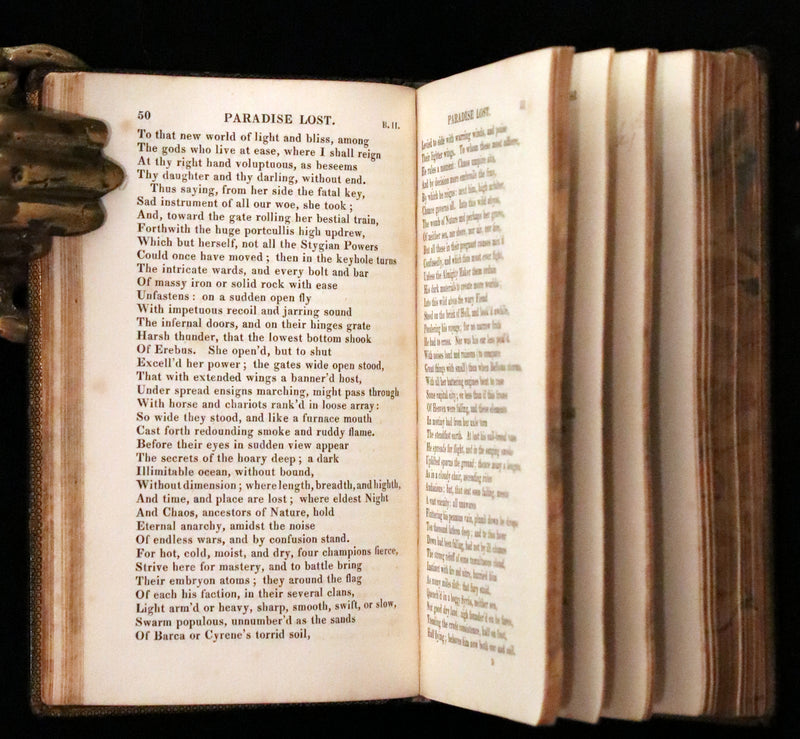 50
PARADISE LOST.
B. II.
To that new world of light and bliss, among
The gods who live at ease, where I shall reign
At thy right hand voluptuous, as beseems
Thy daughter and thy darling, without end.
Thus saying, from her side the fatal key,
Sad instrument of all our woe, she took ;
And, toward the gate rolling her bestial train,
Forthwith the huge portcullis high updrew,
Which but herself, not all the Stygian Powers
Could once have moved ; then in the keyhole turns
The intricate wards, and every bolt and bar
Of massy iron or solid rock with ease
Unfastens : on a sudden open fly
With impetuous recoil and jarring sound
The infernal doors, and on their hinges grate
Harsh thunder, that the lowest bottom shook
Of Erebus. She open'd, but to shut
Excell'd her power ; the gates wide open stood,
That with extended wings a banner'd host,
Under spread ensigns marching, might pass through
With horse and chariots rank'd in loose array :
So wide they stood, and like a furnace mouth
Cast forth redounding smoke and ruddy flame.
Before their eyes in sudden view appear
The secrets of the hoary deep ; a dark
Illimitable ocean, without bound,
Without dimension ; where length, breadth, and highth,
And time, and place are lost ; where eldest Night
And Chaos, ancestors of Nature, hold
Eternal anarchy, amidst the noise
Of endless wars, and by confusion stand.
For hot, cold, moist, and dry, four champions fierce,
Strive here for mastery, and to battle bring
Their embryon atoms ; they around the flag
Of each his faction, in their several clans,
Light arm'd or heavy, sharp, smooth, swift, or slow,
Swarm populous, unnumber'd as the sands
Of Barca or Cyrene's torrid soil,
PARADISE LOST.
Levied to side with warring winds, and poise
Their lighter wings. To whom these most adhere,
He rules a moment: Chaos umpire sits,
And by decision more embroils the fray,
By which he reigns: next him, high arbiter,
Chance governs all. Into this wild abyss,
The womb of Nature and perhaps her grave,
Of neither sea, nor shore, nor air, nor fire,
But all these in their pregnant causes mix'd
Confusedly, and which thus must ever fight,
Unless the Almighty Maker them ordain
His dark materials to create more worlds ;
Into this wild abyss the wary Fiend
Stood on the brink of Hell, and look'd awhile,
Pondering his voyage ; for no narrow frith
He had to cross. Nor was his ear less peal'd
With noises loud and ruinous (to compare
Great things with small) than when Bellona storms,
With all her battering engines bent to rase
Some capital city ; or less than if this frame
Of Heaven were falling, and these elements
In mutiny had from her axle torn
The steadfast earth. At last his sail-broad vans
He spreads for flight, and in the surging smoke
Uplifted spurns the ground ; thence many a league,
As in a cloudy chair, ascending rides
Audacious ; but, that seat soon failing, meets
A vast vacuity: all unawares
Fluttering his pennons vain, plumb down he drops
Ten thousand fathom deep ; and to this hour
Down had been falling, had not by ill chance
The strong rebuff of some tumultuous cloud,
Instinct with fire and nitre, hurried him
As many miles aloft: that fury staid,
Quench'd in a boggy Syrtis, neither sea,
Nor good dry land: nigh founder'd on he fares,
Treading the crude consistence, half on foot,
Half flying ; behoves him now both oar and sail.